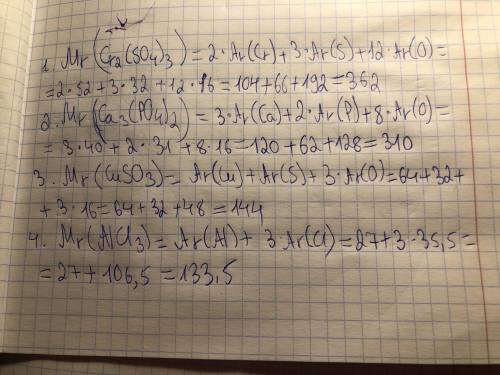 1. Mr(Cr2(SO4)3) = 2·Ar(Cr)+3·Ar(S)+12·Ar(O)=
=2·52+3·32+12·16=104+66+192=362
2. Mr(Ca3(PO4)2) = 3·Ar(Ca)+2·Ar(P)+8·Ar(O)=
= 3·40+2·31+8·16=120+62+128=310
3. Mr(CuSO3)= Ar(Cu)+Ar(S)+3·Ar(O)=64+32+
+3·16=64+32+48=144
4. Mr(AlCl3)=Ar(Al)+3·Ar(Cl)=27+3·35,5=
=27+106,5=133,5